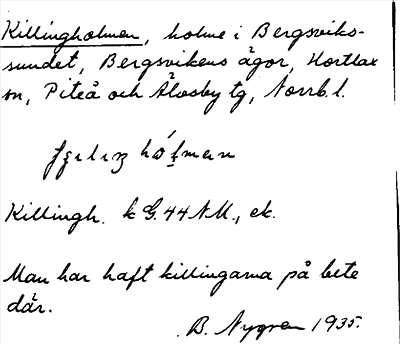 Killingholmen, holme i Bergsviks-
sundet, Bergsvikens ägor, Hortlax
sn, Piteå och Älvsby tg, Norrb. l.
Killingh. k G. 44 N.M., ek.
Man har haft killingarna på bete
där.
B. Nygren 1935.